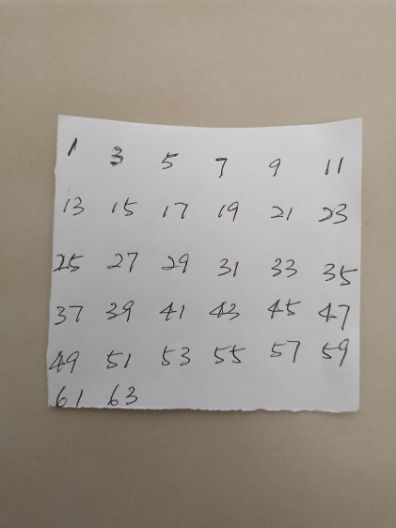 1 3 5 7 9 11
13 15 17 19 21 23
25 27 29 31 33 35
37 39 41 43 45 47
49 51 53 55 57 59
61 63